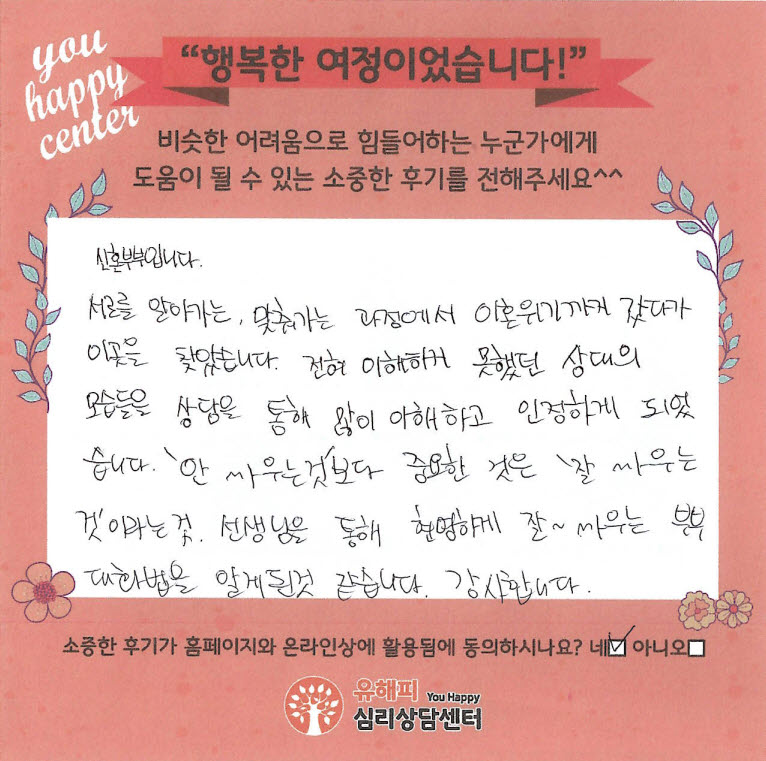 you
happy
center
“행복한 여정이었습니다!”
비슷한 어려움으로 힘들어하는 누군가에게
도움이 될 수 있는 소중한 후기를 전해주세요^^
신혼부부입니다.
서로를 알아가는, 맞춰가는 과정에서 이혼위기까지 갔다가
이곳을 찾았습니다. 전혀 이해하지 못했던 상대의
모습들을 상담을 통해 많이 이해하고 인정하게 되었
습니다. '안 싸우는것'보다 중요한 것은 '잘 싸우는
것'이라는것. 선생님을 통해 현명하게 잘~ 싸우는 부부
대화법을 알게된것 같습니다. 감사합니다.
소중한 후기가 홈페이지와 온라인상에 활용됨에 동의하시나요? 네☑ 아니오☐
유해피 You Happy
심리상담센터